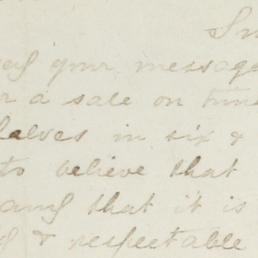 your message
r a sale on time
halves in six &
to believe that
and that it is
& respectable